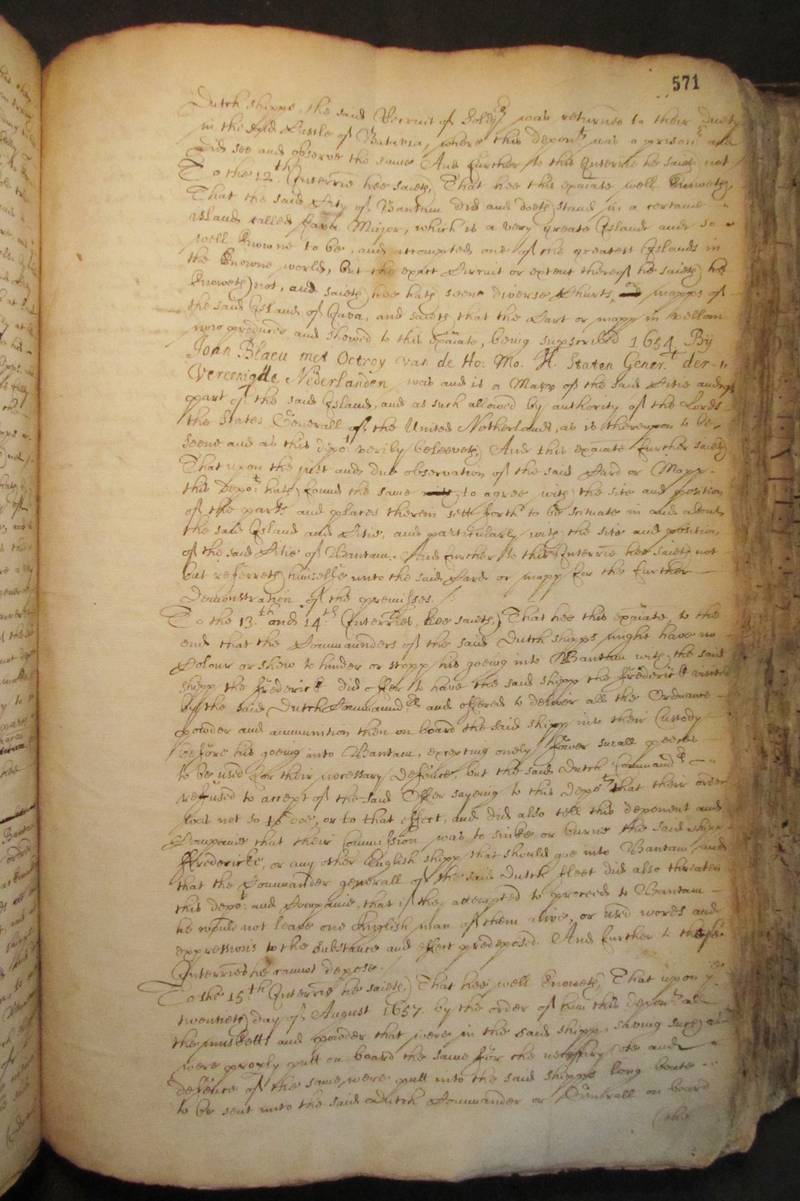 571
Dutch shipps the said Recruit of Sold:rs was returned to their Duety
in the said Castle of Batavia, where this depon:t was a prison:r and
did see and observe the same And further to this Interrie he saieth not
To the 12th Interrie hee saieth, That hee this exãiate well knoweth,
That the said City of Bantam did and doeth stand in a certaine
island called Java Major, which is a very greate Island and so
well knowne to be, and accompted one of the greatest Islands in
the knowne world, but the exact Circuit or extent thereof he saieth he
knoweth not, and saieth hee hath seene diverse Charts mapps of
the said Island of Java, and saieth that the Cart or mapp in vellam
now produced and showed to this exãiate, being superscribed 1654 By
Joan Blaeu met Octroy van de Ho: Mo. H. Staten Gener:l der
Vereenigde Nederlanden was and is a Mapp of the said Citie and
part of the said Island, and as such allowed by authority of the Lords
the States Generall of the United Netherlands, as is thereupon to be
seene and as this depo:t verily beleeveth, And this exãiate further saieth
That upon the just and due observation of the said Card or Mapp
this Depo:t hath found the same to agree with the site and position
of the parts and places therein sett forth to be scituate in and about
the said Island and Citie, and particularly with the site and position
of the said Citie of Bantam. And further to this Interrie hee saieth not
but referreth himselfe unto the said Card or mapp for the further
Demonstration of the premisses.
To the 13.th and 14.th Interries hee saieth, That hee this exãiate to the
end that the Commaunders of the said Dutch shipps might have no
Colour or show to hinder or stopp his goeing into Bantam with the said
shipp the Frederick did offer to have the said shipp the Frederick
by the said Dutch Command:rs and offered to deliver all the Ordnance
powder and ammunition then on board the said shipp into their Custody
before his goeing into Bantam, excepting onely fower small peeces
to be used for their necessary Defence, but the said Dutch Command:rs
refused to accept of the said Offer sayeing to this Depo:t that their order
was not so to doe, or to that effect, and did also tell this deponent and
Companie that their Commission was to sinke or burne the said shipp
Frederick, or any other English shipp that should goe into Bantam and
that the Commander generall of the said Dutch fleet did also threaten
this depo:t and Companie, that if they attempted to proceed to Bantam
he would not leave one English man of them alive, or used words and
expressions to the substance and effect predeposed. And further to these
Interries he cannot depose.
To the 15th Interrie he saieth, That hee well knoweth, That upon ye
twentieth day of August 1657 by the order of him this depon:t all
the musketts and powder that were in the said shipp saving such as
were properly putt on board the same for the necessary use and
defence of the same were putt into the said shipps long boate
to be sent unto the said Dutch Commander or Generall on board
(the